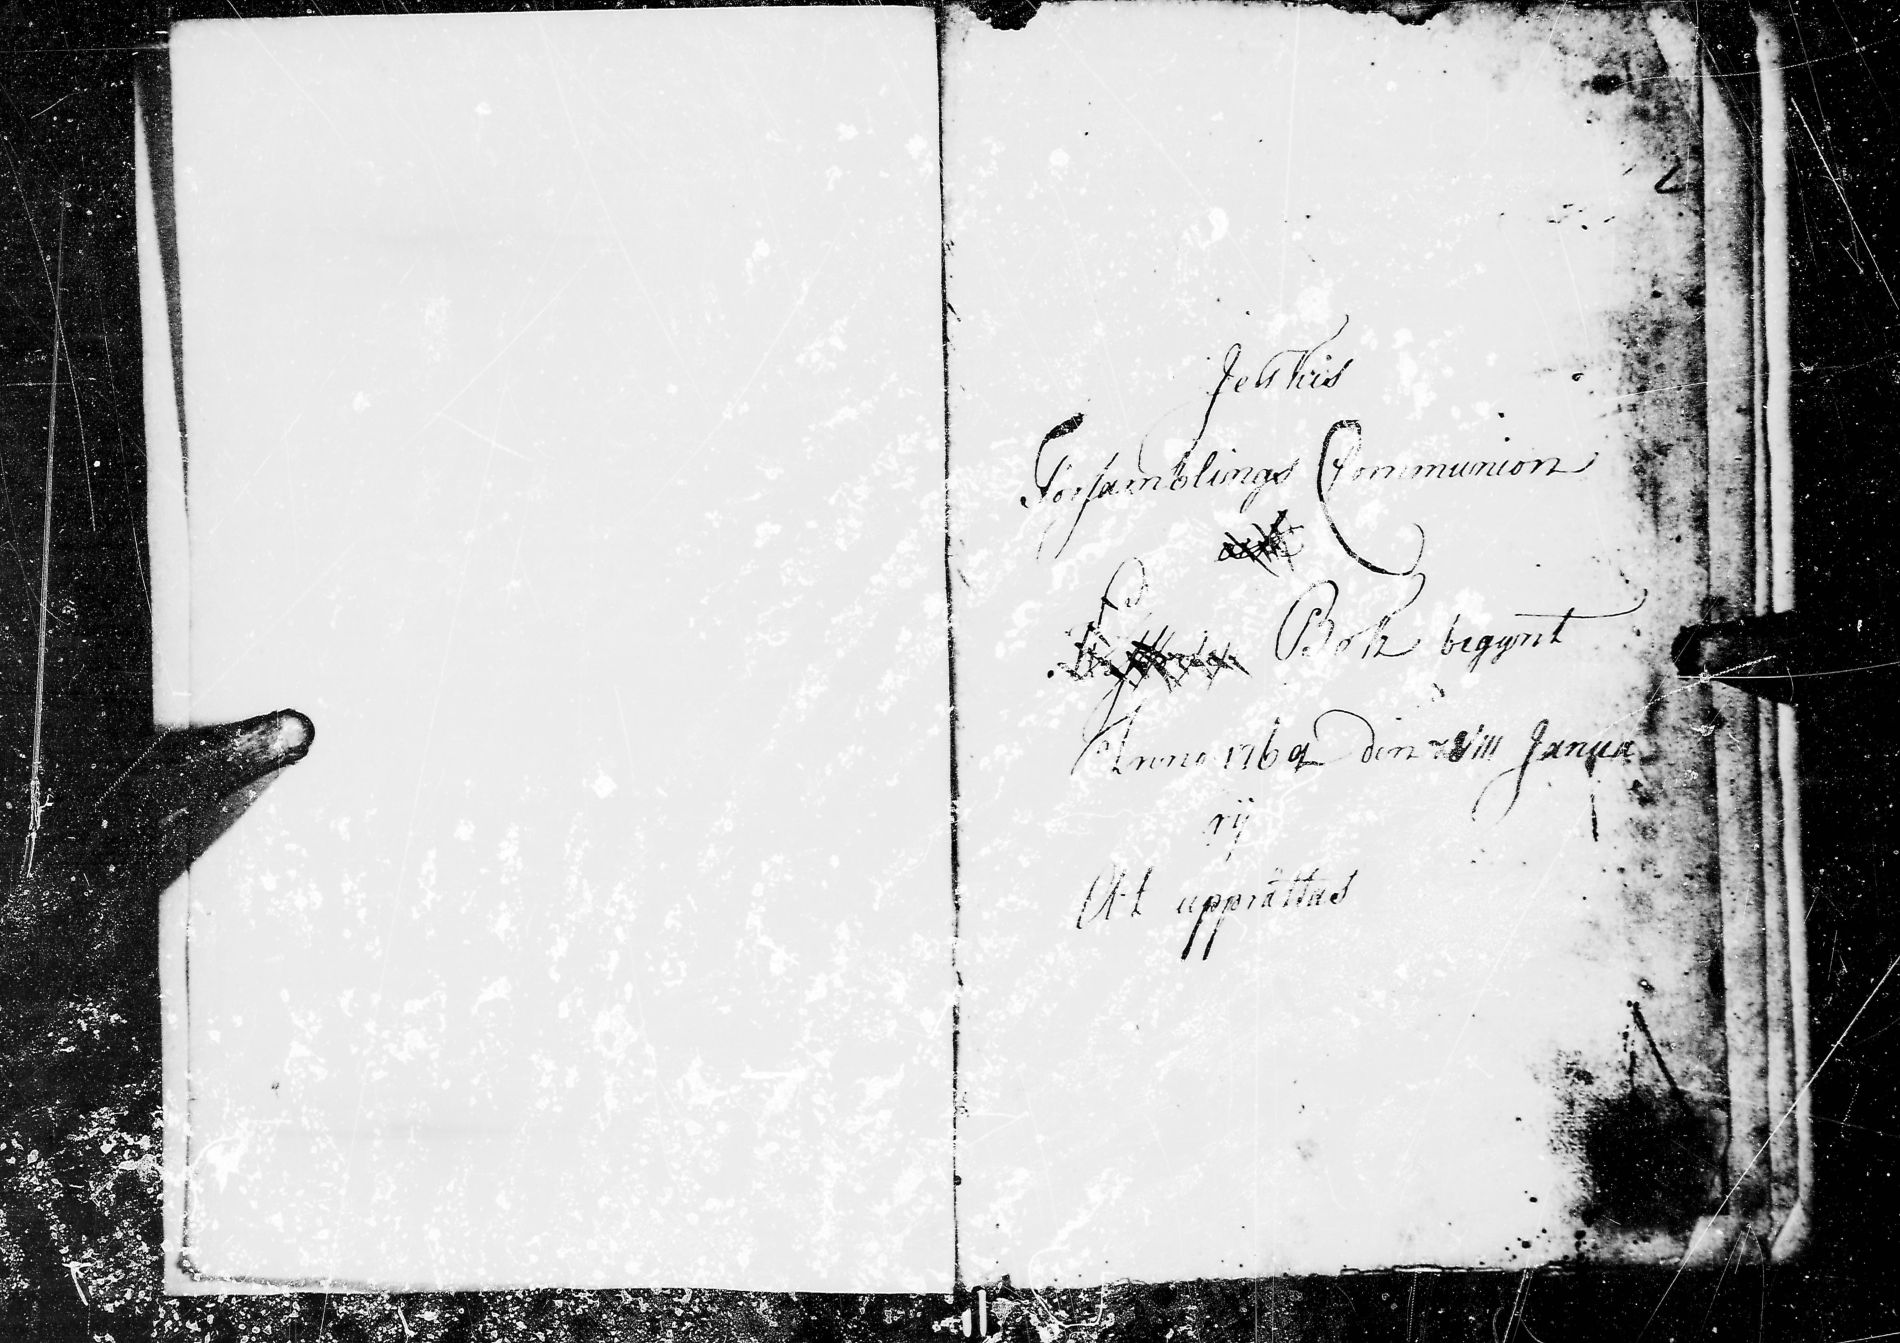 Jeskis
Församblings Communion
Bok begynt
Anno 1769 den VIII Janua
rij
At upprättas